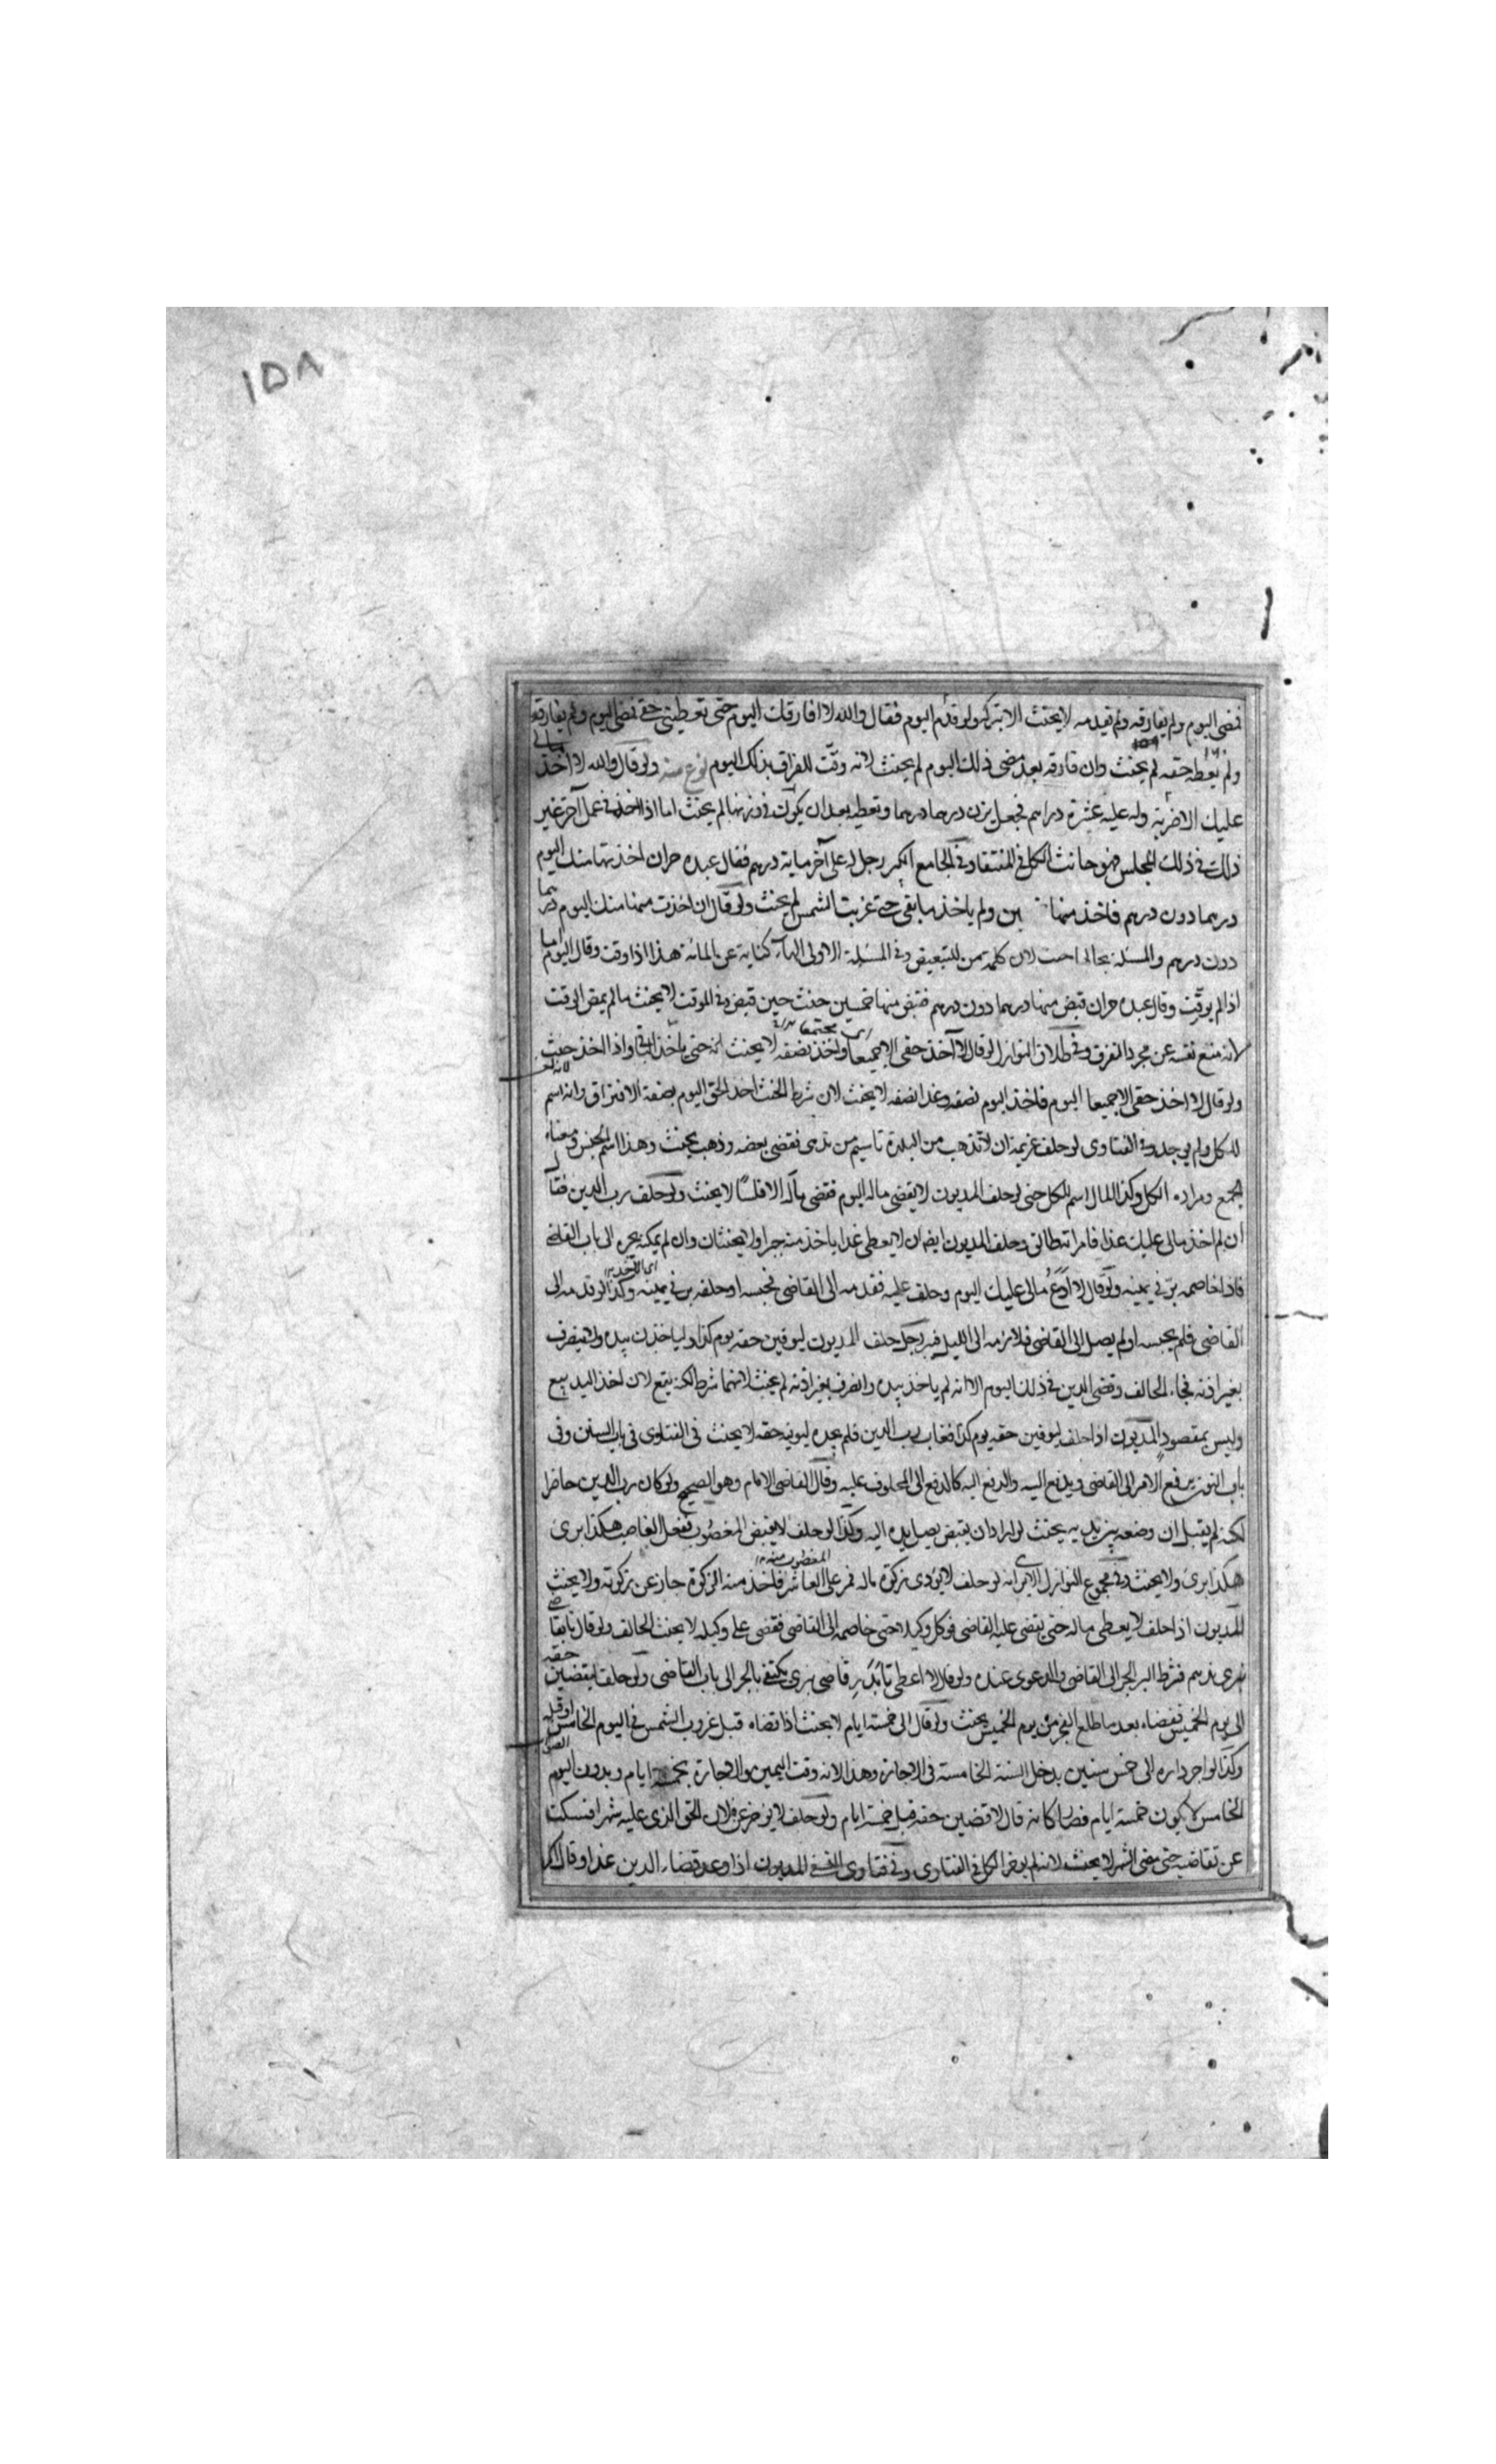 ١٥٨
فمضى اليوم ولم يفارقه ولم يقدمه لا يحنث الا بتركه ولو قدم اليوم فقال والله لا افارقك اليوم حتى تعطيني حقي فمضى اليوم ولم يفارقه
ولم يعطه حقه لم يحنث وان فارقه بعد مضي ذلك اليوم لم يحنث لانه وقت للفراق بذلك اليوم نوع منه ولو قال والله لا اخذ مالي
عليك الا ضربة وله عليه عشرة دراهم فجعل يزن درهما درهما وتعطيه بعد ان يكون في وزنها لم يحنث اما اذا اخذ في عمل آخر غير
ذلك في ذلك المجلس فهو حانث الكل في المنتقا وفي الجامع الكبير رجل له على آخر ماية درهم فقال عبده حر ان اخذتها منك اليوم
درهما دون درهم فاخذ منها ولم ياخذ ما بقي حتى غربت الشمس لم يحنث ولو قال ان اخذت منها منك اليوم درهما
دون درهم والمسئلة بحالها حنث لان كلمة من للتبعيض وفي المسئلة الاولى الهاء كناية عن المائة هذا اذا وقت وقال اليوم اما
اذا لم يوقت وقال عبده حر ان قبض منها درهما دون درهم فقبض منها خمسين حنث حين قبض وفي الموقت لا يحنث ما لم يمض الوقت
لانه منع نفسه عن مجرد التفرق وفي طلاق النوازل لو قال لا آخذ حقي الا جميعا واخذ نصفه لا يحنث حتى ياخذ الباقي واذا اخذ حنث
ولو قال لا اخذ حقي الا جميعا اليوم فاخذ اليوم نصفه وغدا نصفه لا يحنث لان شرط الحنث اخذ الحق اليوم بصفة الافتراق وانه اسم
للكل ولم يوجد وفي الفتاوى لو حلف غريمه ان لا تذهب من البلدة تا سيم من ندهى فقضى بعضه وذهب يحنث وهذا اسم الجنس ومعناه
الجمع ومراده الكل وكذا المال اسم للكل حتى لو حلف المديون لا يقضي ماله اليوم فقضى ماله الا فلسا لا يحنث ولو حلف رب الدين فقال
ان لم اخذ مالي عليك غدا فامراته طالق وحلف المديون ايضا ان لا يعطى غدا ياخذ منه جبرا ولا يحنثان وان لم يمكنه يجره الى باب القاضي
فاذا خاصمه بر في يمينه ولو قال لا ادع مالي عليك اليوم وحلف عليه فقدمه الى القاضي فحبسه او حلفه بر في يمينه وكذا لو قدمه الى
القاضي فلم يحبسه او لم يصل الى القاضي فلازمه الى الليل فبر رجل حلف المديون ليوفين حقه يوم كذا ولياخذن بيده ولا ينصرف
بغير اذنه فجاء الحالف وقضى الدين في ذلك اليوم الا انه لم ياخذ بيده وانصرف بغير اذنه لم يحنث لانهما شرط لكنه يتبع لان اخذ اليد يبيع
وليس بمقصود المديون اذا حلف ليوفين حقه يوم كذا فغاب رب الدين فلم يجده ليوفيه حقه لا يحنث في الفتاوى في باب السنن وفي
باب النون يرفع الامر الى القاضي ويدفع اليه والدفع اليه كالدفع الى المحلوف عليه وقال القاضي الامام وهو الصحيح ولو كان رب الدين حاضرا
لكنه لم يقبل ان وضعه بين يديه بحيث لو اراد ان يقبض يصل يده اليه وكذا لو حلف لا يقبض المغصوب ففعل الغاصب هكذا برئ
هكذا برئ ولا يحنث وفي مجموع النوازل لو حلف لا يؤدى زكوة ماله فمر على العاشر فاخذ منه الزكوة جاز عن زكوته ولا يحنث
المديون اذا حلف لا يعطى ماله حتى يقضى عليه القاضي فوكل وكيلا حتى خاصمه الى القاضي فقضى على وكيله لا يحنث الحالف ولو قال تا بقاضي
نبرى ندهم فشرط البر الجر الى القاضي والدعوى عنده ولو قال لا اعطى تا بدر قاضى نبرى يكتفى بالجر الى باب القاضى ولو حلف ليقضين حقه
الى يوم الخميس فقضاه بعد ما طلع الفجر من يوم الخميس يحنث ولو قال الى خمسة ايام لا يحنث اذا قضاه قبل غروب الشمس في اليوم الخامس
وكذا لو اجر داره الى خمس سنين يدخل السنة الخامسة في الاجارة وهذا لانه وقت اليمين والاجارة بخمسة ايام وبدون اليوم
الخامس لا يكون خمسة ايام فصار كانه قال لاقضين حقه قبل خمسة ايام ولو حلف لا يؤخر عن فلان الحق الذي عليه شهرا فسكت
عن تقاضيه حتى مضى الشهر لا يحنث لانه لم يؤخر الكل في الفتاوى وفي فتاوى النسفي المديون اذا وعد قضاء الدين غدا وقال اكر